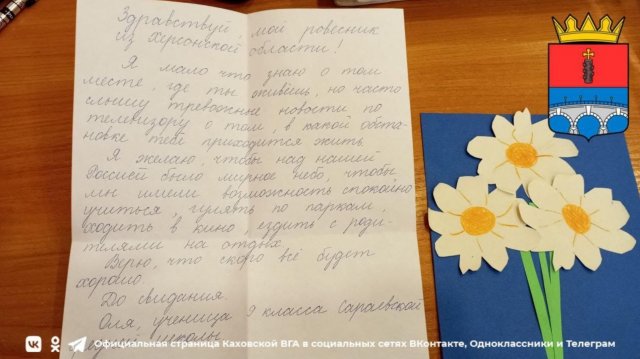 Здравствуй, мой ровесник
из Херсонской области!
Я мало что знаю о том
месте, где ты живёшь, но часто
слышу тревожные новости по
телевизору о том, в какой обста-
новке тебе приходится жить.
Я желаю, чтобы над нашей
Россией было мирное небо, чтобы
мы имели возможность спокойно
учиться, гулять по паркам,
ходить в кино, ездить с роди-
телями на отдых.
Верю, что скоро всё будет
хорошо.
До свидания.
Оля, ученица 9 класса Сараевской
школы
Официальная страница Каховской ВГА в социальных сетях ВКонтакте, Одноклассники и Телеграм